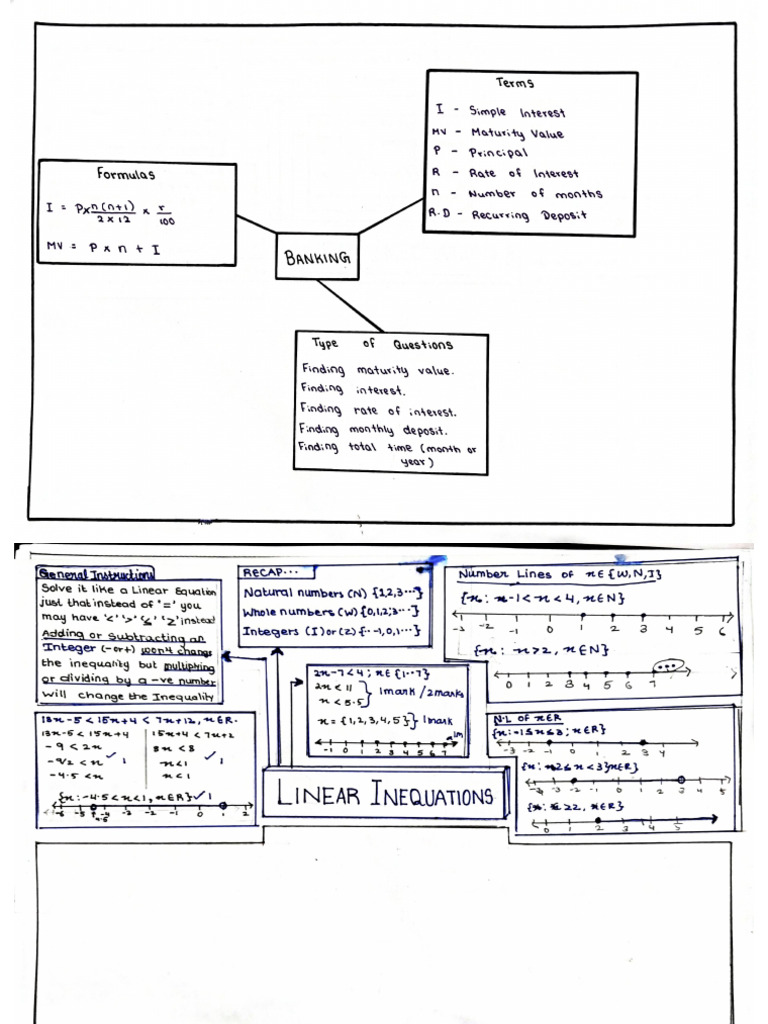 Terms
I - Simple Interest
MV - Maturity Value
P - Principal
R - Rate of Interest
n - Number of months
R.D - Recurring Deposit
Formulas
I = P x n(n+1) / 2 x 12 x r / 100
MV = P x n + I
BANKING
Type of Questions
Finding maturity value.
Finding interest.
Finding rate of interest.
Finding monthly deposit.
Finding total time (month or
year)
General Instructions
Solve it like a Linear Equation
just that instead of '=' you
may have '<' '>' '≤' '≥' instead
Adding or subtracting an
Integer (- or +) won't change
the inequality but multipling
or dividing by a -ve number
will change the Inequality
RECAP...
Natural numbers (N) {1,2,3...}
Whole numbers (W) {0,1,2,3...}
Integers (I) or (Z) {...-1,0,1...}
Number Lines of x∈{W,N,I}
{x: x-1<x<4, x∈N}
-3 -2 -1 0 1 2 3 4 5 6
{x: x>2, x∈N}
0 1 2 3 4 5 6 7
2x-7<4; x∈{1..7}
2x<11
x<5.5
1mark/2marks
x={1,2,3,4,5} 1mark
-1 0 1 2 3 4 5 6 7
1m
13x-5<15x+4<7x+12, x∈R.
13x-5<15x+4
-9<2x
-9/2<x 1
-4.5<x
15x+4<7x+2
8x<8
x<1 1
x<1
{x:-4.5<x<1, x∈R} 1
-6 -5 -4 -3 -2 -1 0 1 2
4.5
N.L of x∈R
{x:-1≤x≤3; x∈R}
-3 -2 -1 0 1 2 3 4
{x: -2≤x<3}x∈R}
-4 -3 -2 -1 0 1 2 3 4 5
≥2, x∈R}
-1 0 1 2 3 4 5
LINEAR INEQUATIONS